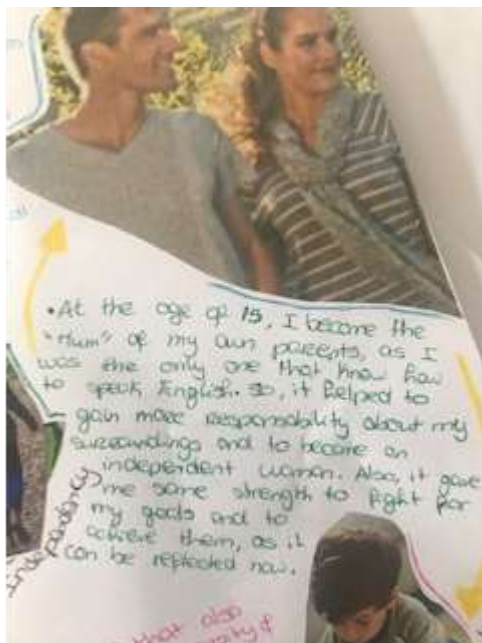 •At the age of 15, I became the
"Mum" of my own parents, as I
was the only one that knew how
to speak English. So, it helped to
gain more responsability about my
surroundings and to become an
independent woman. Also, it gave
me some strength to fight for
my goals and to
achieve them, as it
can be reflected now.
Independency
that also